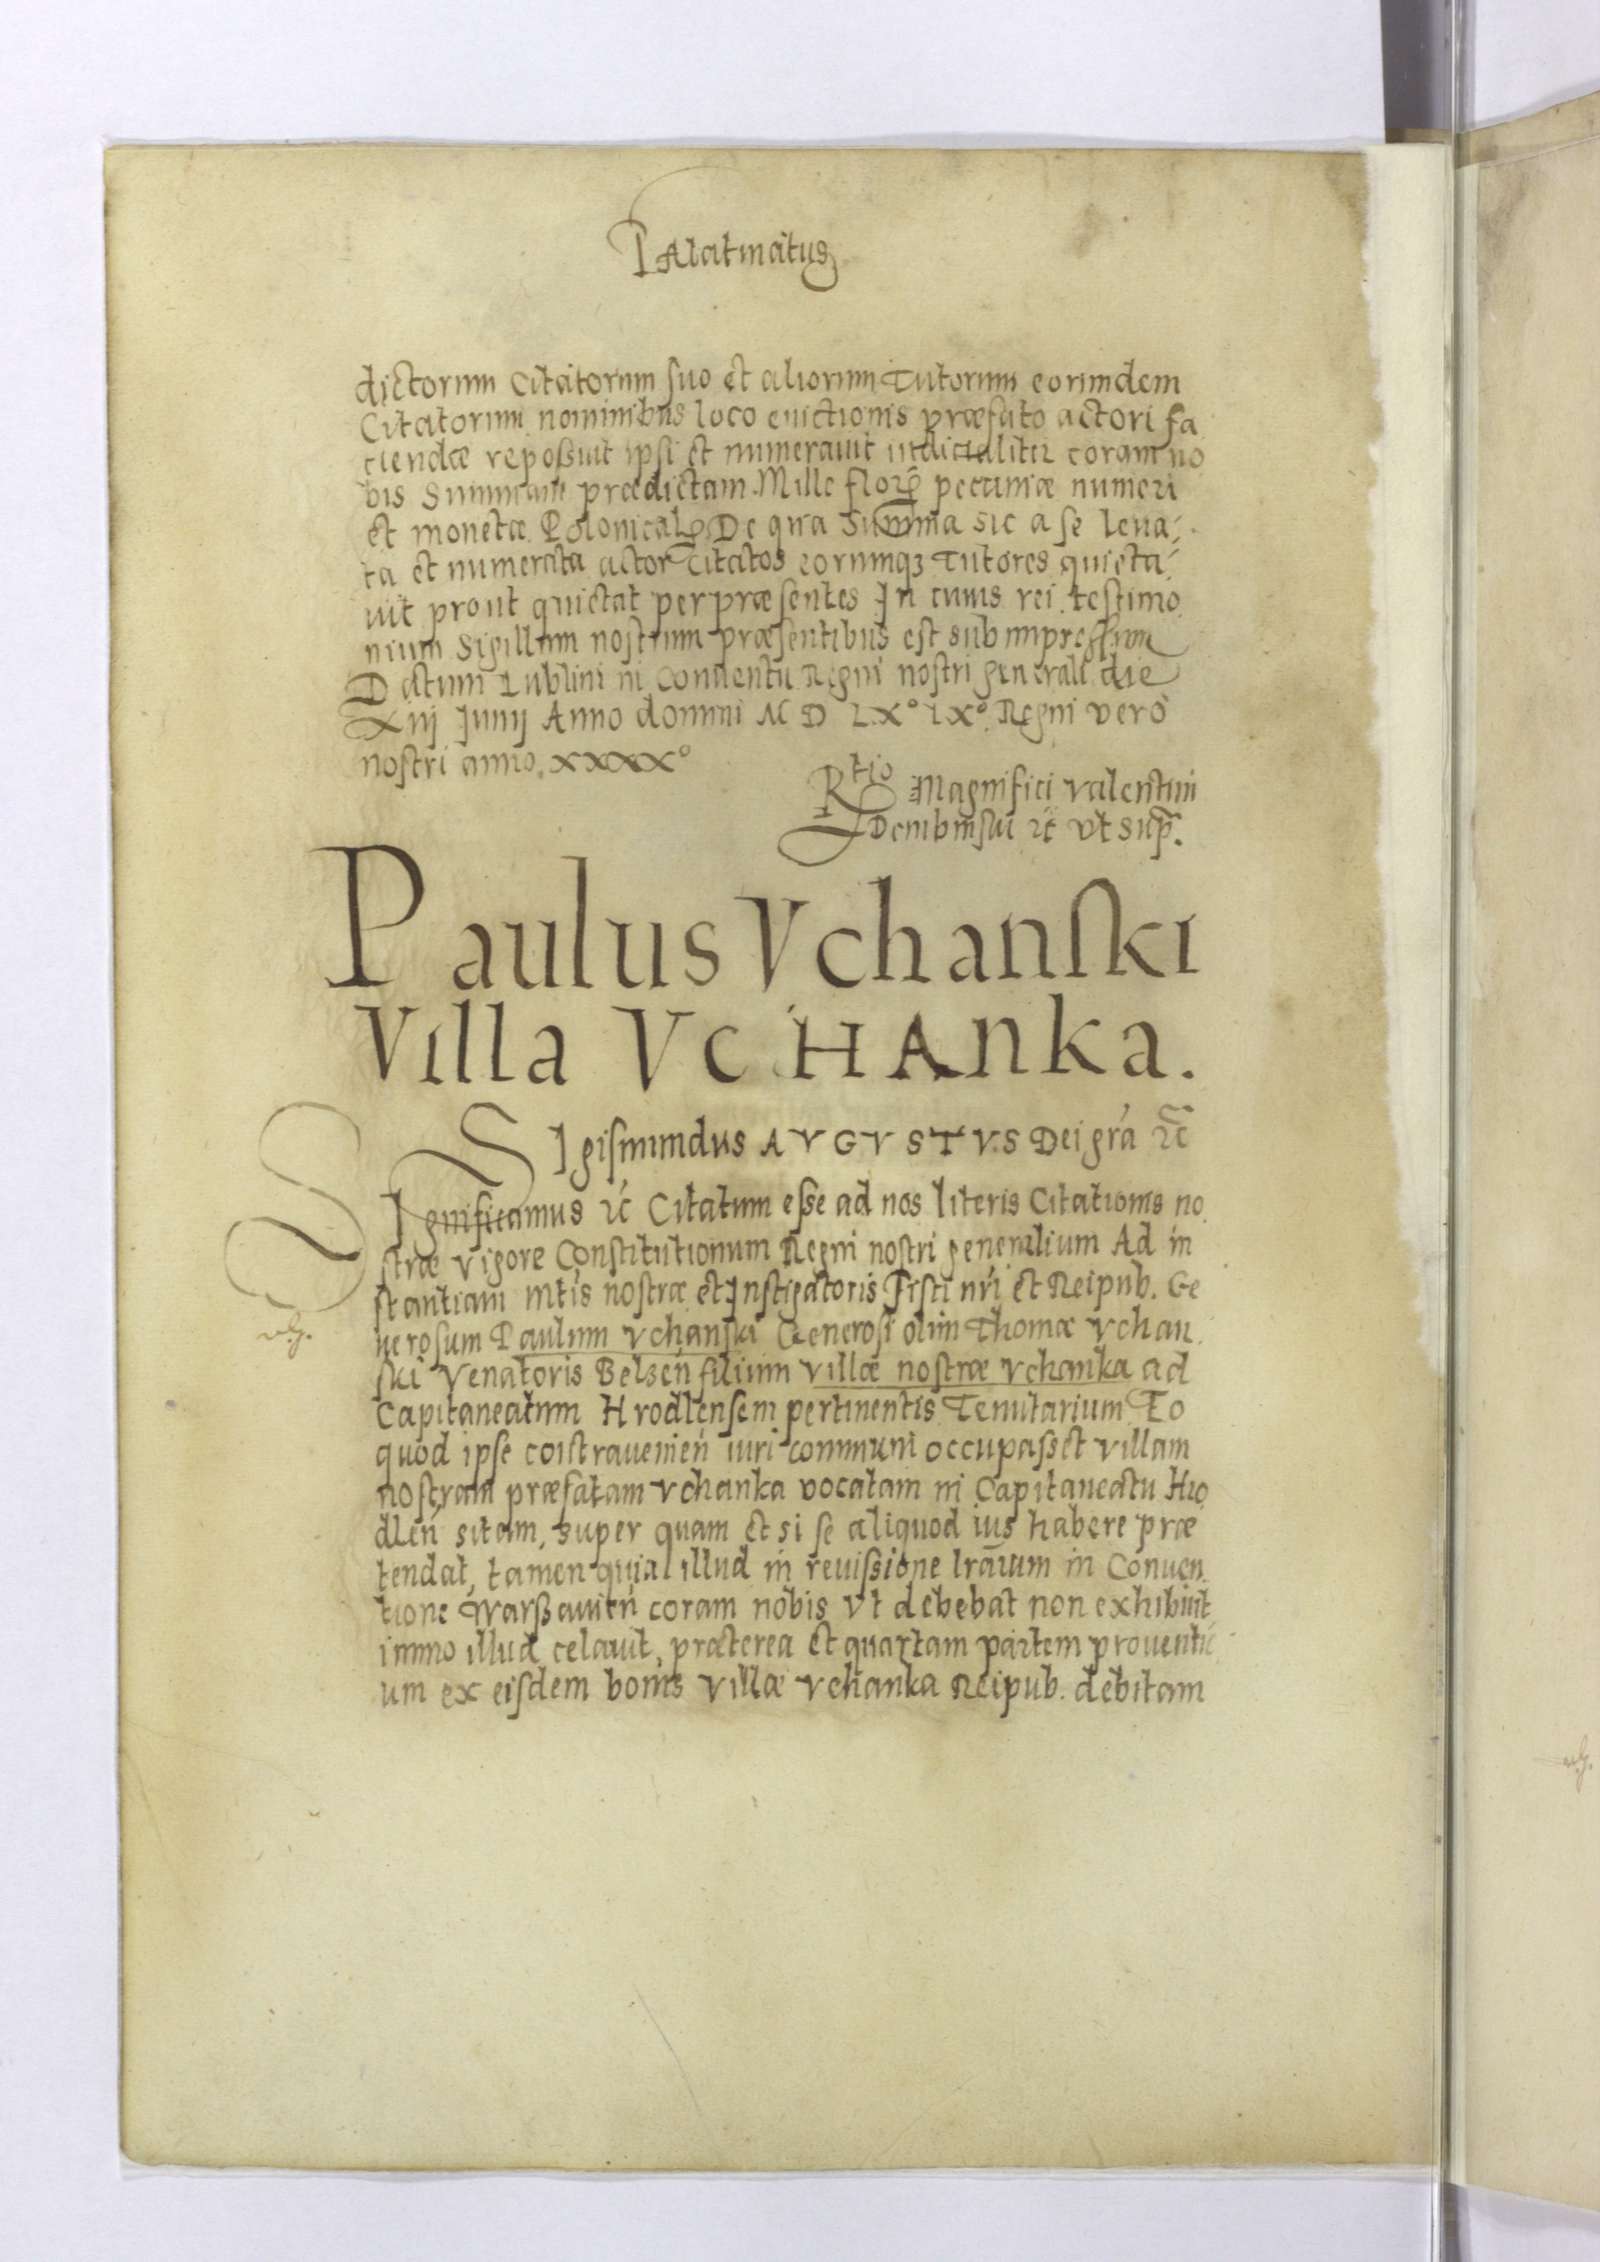 Palatinatus
dictorum Citatorum suo et aliorum Tutorum eorumdem
Citatorum nominibus loco euictionis præfato actori fa
ciendæ reposuit ipsi et numerauit iudicialiter coram no
bis Summam prædictam Mille floren̄ pecuniæ numeri
et monetæ Polonical De qua summa sic a se leua,
ta et numerata actor Citatos eorumqꝫ Tutores quieta,
uit prout quietat per præsentes In cuius rei testimo
nium Sigillum nostrum præsentibus est sub impressum
Datum Lublini in Conuentu Regni nostri generali die
Xiij Junij Anno domini M D L.X° I.X°. Regni vero
nostri anno. XXXX°
Rtio Magnifici Valentini
Dembinski ꝛc̄ vt sup̄.
Paulus Vchanſki
Villa VCHAnka.
SIgiſmundus AVGVSTVS Dei gr̄a ꝛc̄
SIgnificamus ꝛc̄ Citatum eſse ad nos literis Citationis no
ſtræ vigore Conſtitutionum Regni noſtri generalium Ad in
ſtantiam Mtis noſtræ et Inſtigatoris Fisci nr̄i et Reipub. Ge
neroſum Paulum Vchanſki Generoſi olim Thomæ Vchan
ſki Venatoris Belzen̄ filium Villæ noſtræ Vchanka ad
Capitaneatum Hrodlenſem pertinentis Tenutarium Eo
quod ipſe contrauenien̄ iuri communi occupaſset villam
noſtram præfatam Vchanka vocatam in Capitaneatu Hro
dlen̄ sitam, super quam et si ſe aliquod ius habere præ
tendat, tamen quia illud in reuiſsione lr̄arum in Conuen
tione Warßauien̄ coram nobis vt debebat non exhibuit
immo illud celauit, præterea et quartam partem prouentu
um ex eiſdem bonis Villæ Vchanka Reipub. debitam